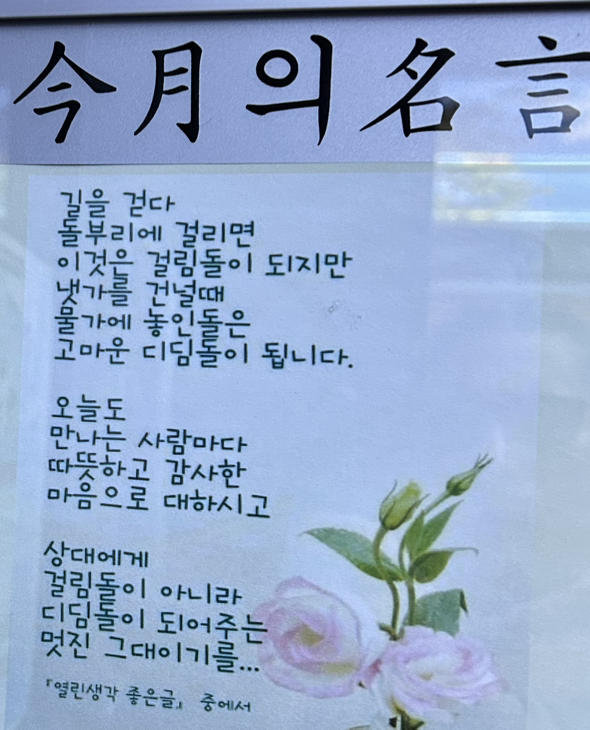 今月의 名言
길을 걷다
돌부리에 걸리면
이것은 걸림돌이 되지만
냇가를 건널때
물가에 놓인돌은
고마운 디딤돌이 됩니다.
오늘도
만나는 사람마다
따뜻하고 감사한
마음으로 대하시고
상대에게
걸림돌이 아니라
디딤돌이 되어주는
멋진 그대이기를...
『열린생각 좋은글』 중에서